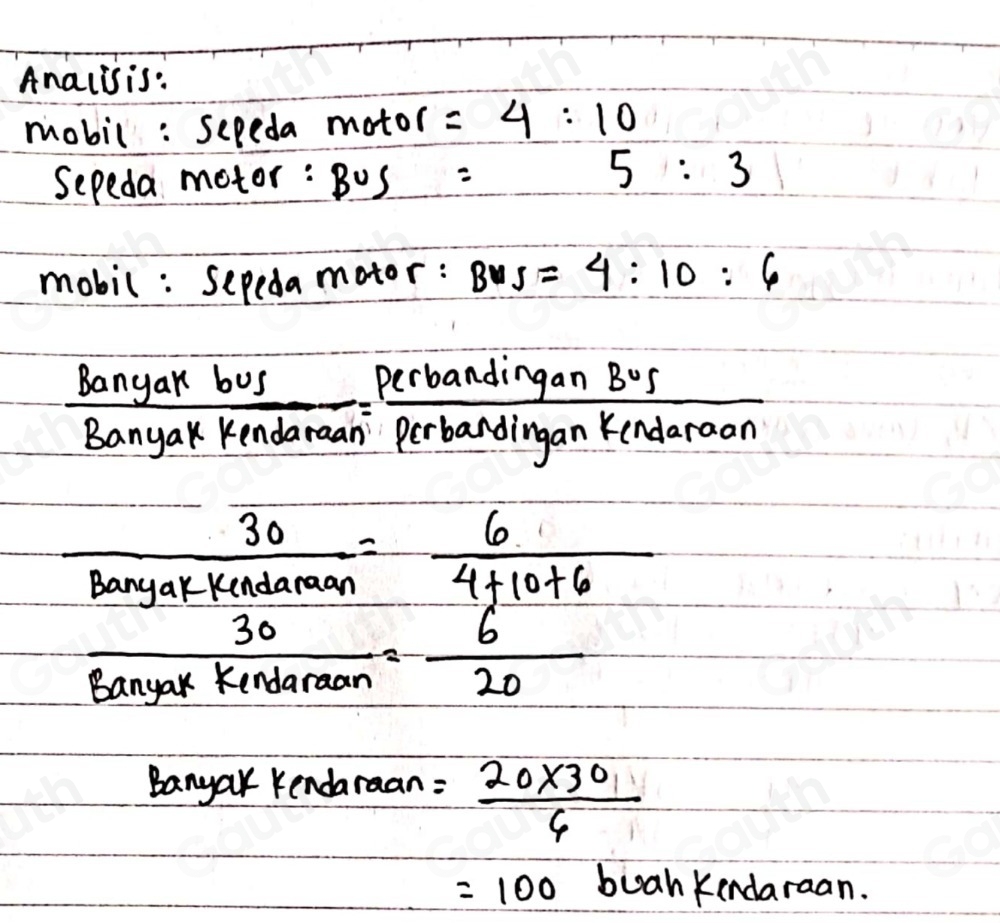 Analisis:
mobil : sepeda motor = 4 : 10
Sepeda motor : Bus = 5 : 3
mobil : Sepeda motor : Bus = 4 : 10 : 6
Banyak bus / Banyak Kendaraan = Perbandingan Bus / Perbandingan Kendaraan
30 / Banyak Kendaraan = 6 / 4+10+6
30 / Banyak Kendaraan = 6 / 20
Banyak Kendaraan = 20×30 / 6
= 100 buah Kendaraan.
Gauth